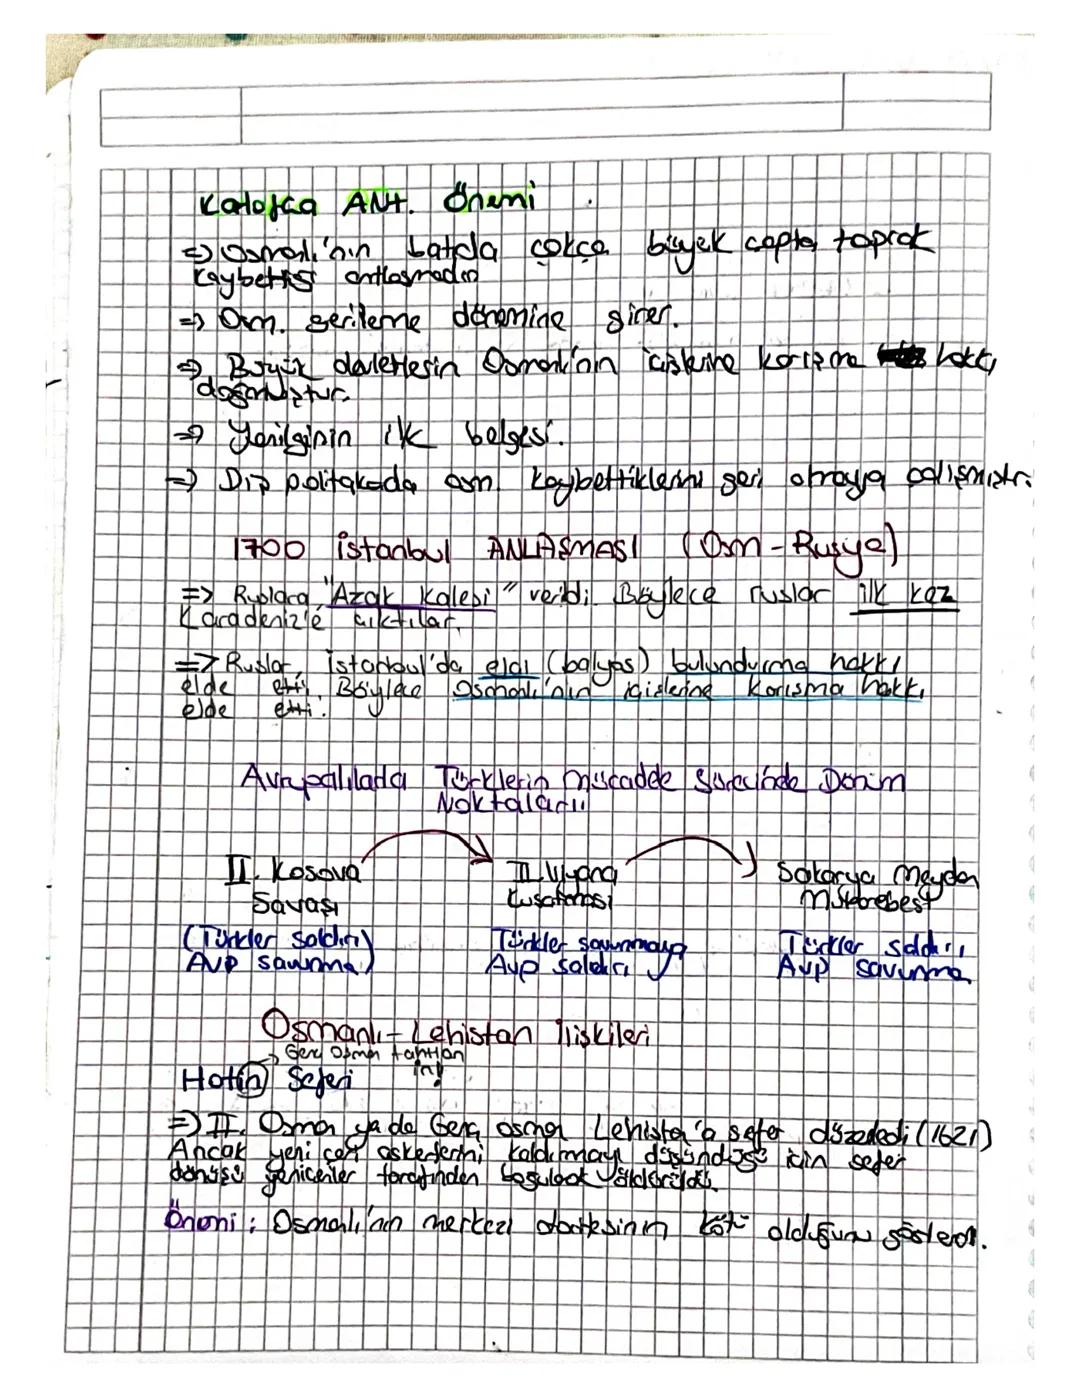 Karlofça ANt. Önemi
=> Osmanlı'nın batıda çokça büyük çapta toprak
kaybettiği antlaşmadır
=> Osm. gerileme dönemine girer.
=> Büyük devletlerin Osmanlı'nın içişlerine karışma hakkı
doğmuştur.
=> Yenilginin ilk belgesi.
=> Dış politikada osm. kaybettiklerini geri almaya çalışmıştır.
1700 istanbul ANLAŞMASI (Osm-Rusya)
=> Ruslara "Azak Kalesi" verildi. Böylece ruslar ilk kez
Karadeniz'e çıktılar.
=> Ruslar, İstanbul'da elçi (balyos) bulundurma hakkı
elde etti. Böylece Osmanlı'nın içişlerine karışma hakkı
elde etti.
Avrupalılada Türklerin Mücadele Sürecinde Dönüm
Noktaları
II. Kosova II. Viyana Sakarya Meydan
Savaşı Kuşatması Muharebesi
(Türkler saldırı) Türkler savunmaya Türkler saldırı
AVP savunma) Avp saldırı Avp savunma
Osmanlı-Lehistan İlişkileri
→ Genç Osman tahttan
in!
Hotin Seferi
=> II. Osman ya da Genç osman Lehistan'a sefer düzenledi (1621)
Ancak yeni çeri askerlerini kaldırmayı düşündüğü için sefer
dönüşü yeniçeriler tarafından boğularak öldürüldü.
Önemi: Osmanlı'nın merkezi otoritesinin kötü olduğunu gösterir.